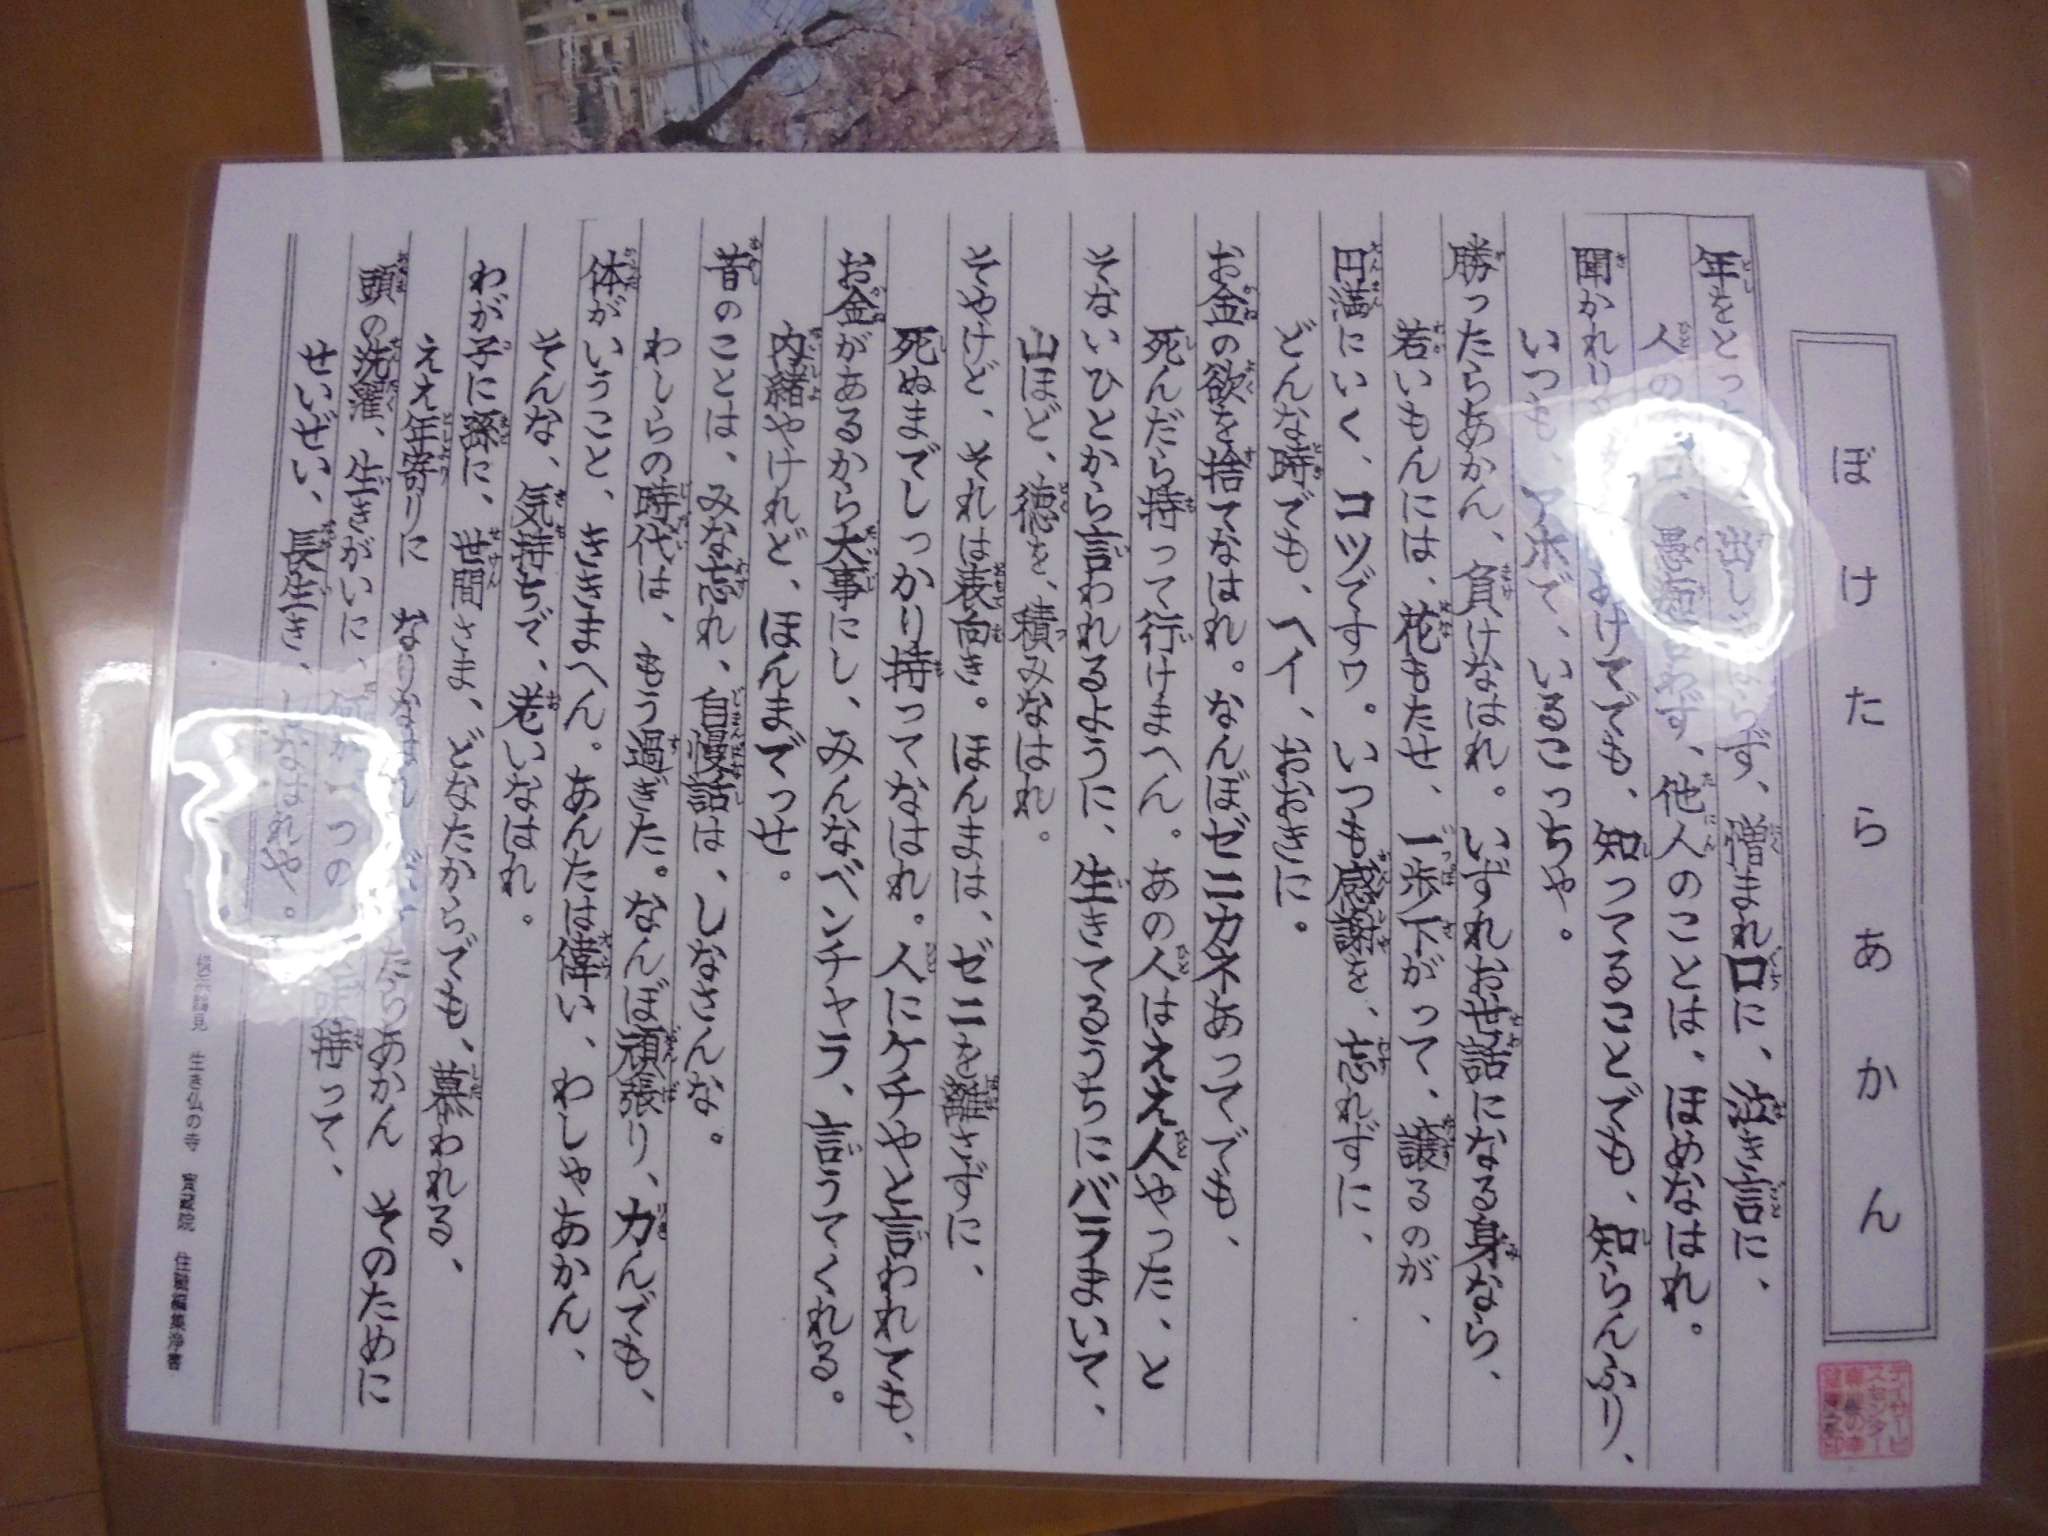 ぼけたらあかん
年をとっ 出し ず、憎まれ口に、泣き言に、
人の 、愚痴 わず、他人のことは、ほめなはれ。
聞かれり でも、知ってることでも、知らんふり、
いつも、アホで、いるこっちゃ。
勝ったらあかん、負けなはれ。いずれお世話になる身なら、
若いもんには、花もたせ、一歩下がって、譲るのが、
円満にいく、コツですワ。いつも感謝を、忘れずに、
どんな時でも、ヘイ、おおきに。
お金の欲を捨てなはれ。なんぼゼニカネあってでも、
死んだら持って行けまへん。あの人はええ人やった、と
そないひとから言われるように、生きてるうちにバラまいて、
山ほど、徳を、積みなはれ。
そやけど、それは表向き。ほんまは、ゼニを離さずに、
死ぬまでしっかり持ってなはれ。人にケチやと言われても、
お金があるから大事にし、みんなベンチャラ、言うてくれる。
内緒やけれど、ほんまでっせ。
昔のことは、みな忘れ、自慢話は、しなさんな。
わしらの時代は、もう過ぎた。なんぼ頑張り、力んでも、
体がいうこと、ききまへん。あんたは偉い、わしゃあかん、
そんな、気持ちで、老いなはれ。
わが子に孫に、世間さま、どなたからでも、慕われる、
ええ年寄りに なりなはれ たらあかん そのために
頭の洗濯、生きがいに、何か一つの 持って、
せいぜい、長生き、しなはれや。
生き仏の寺
デイサービスセンター